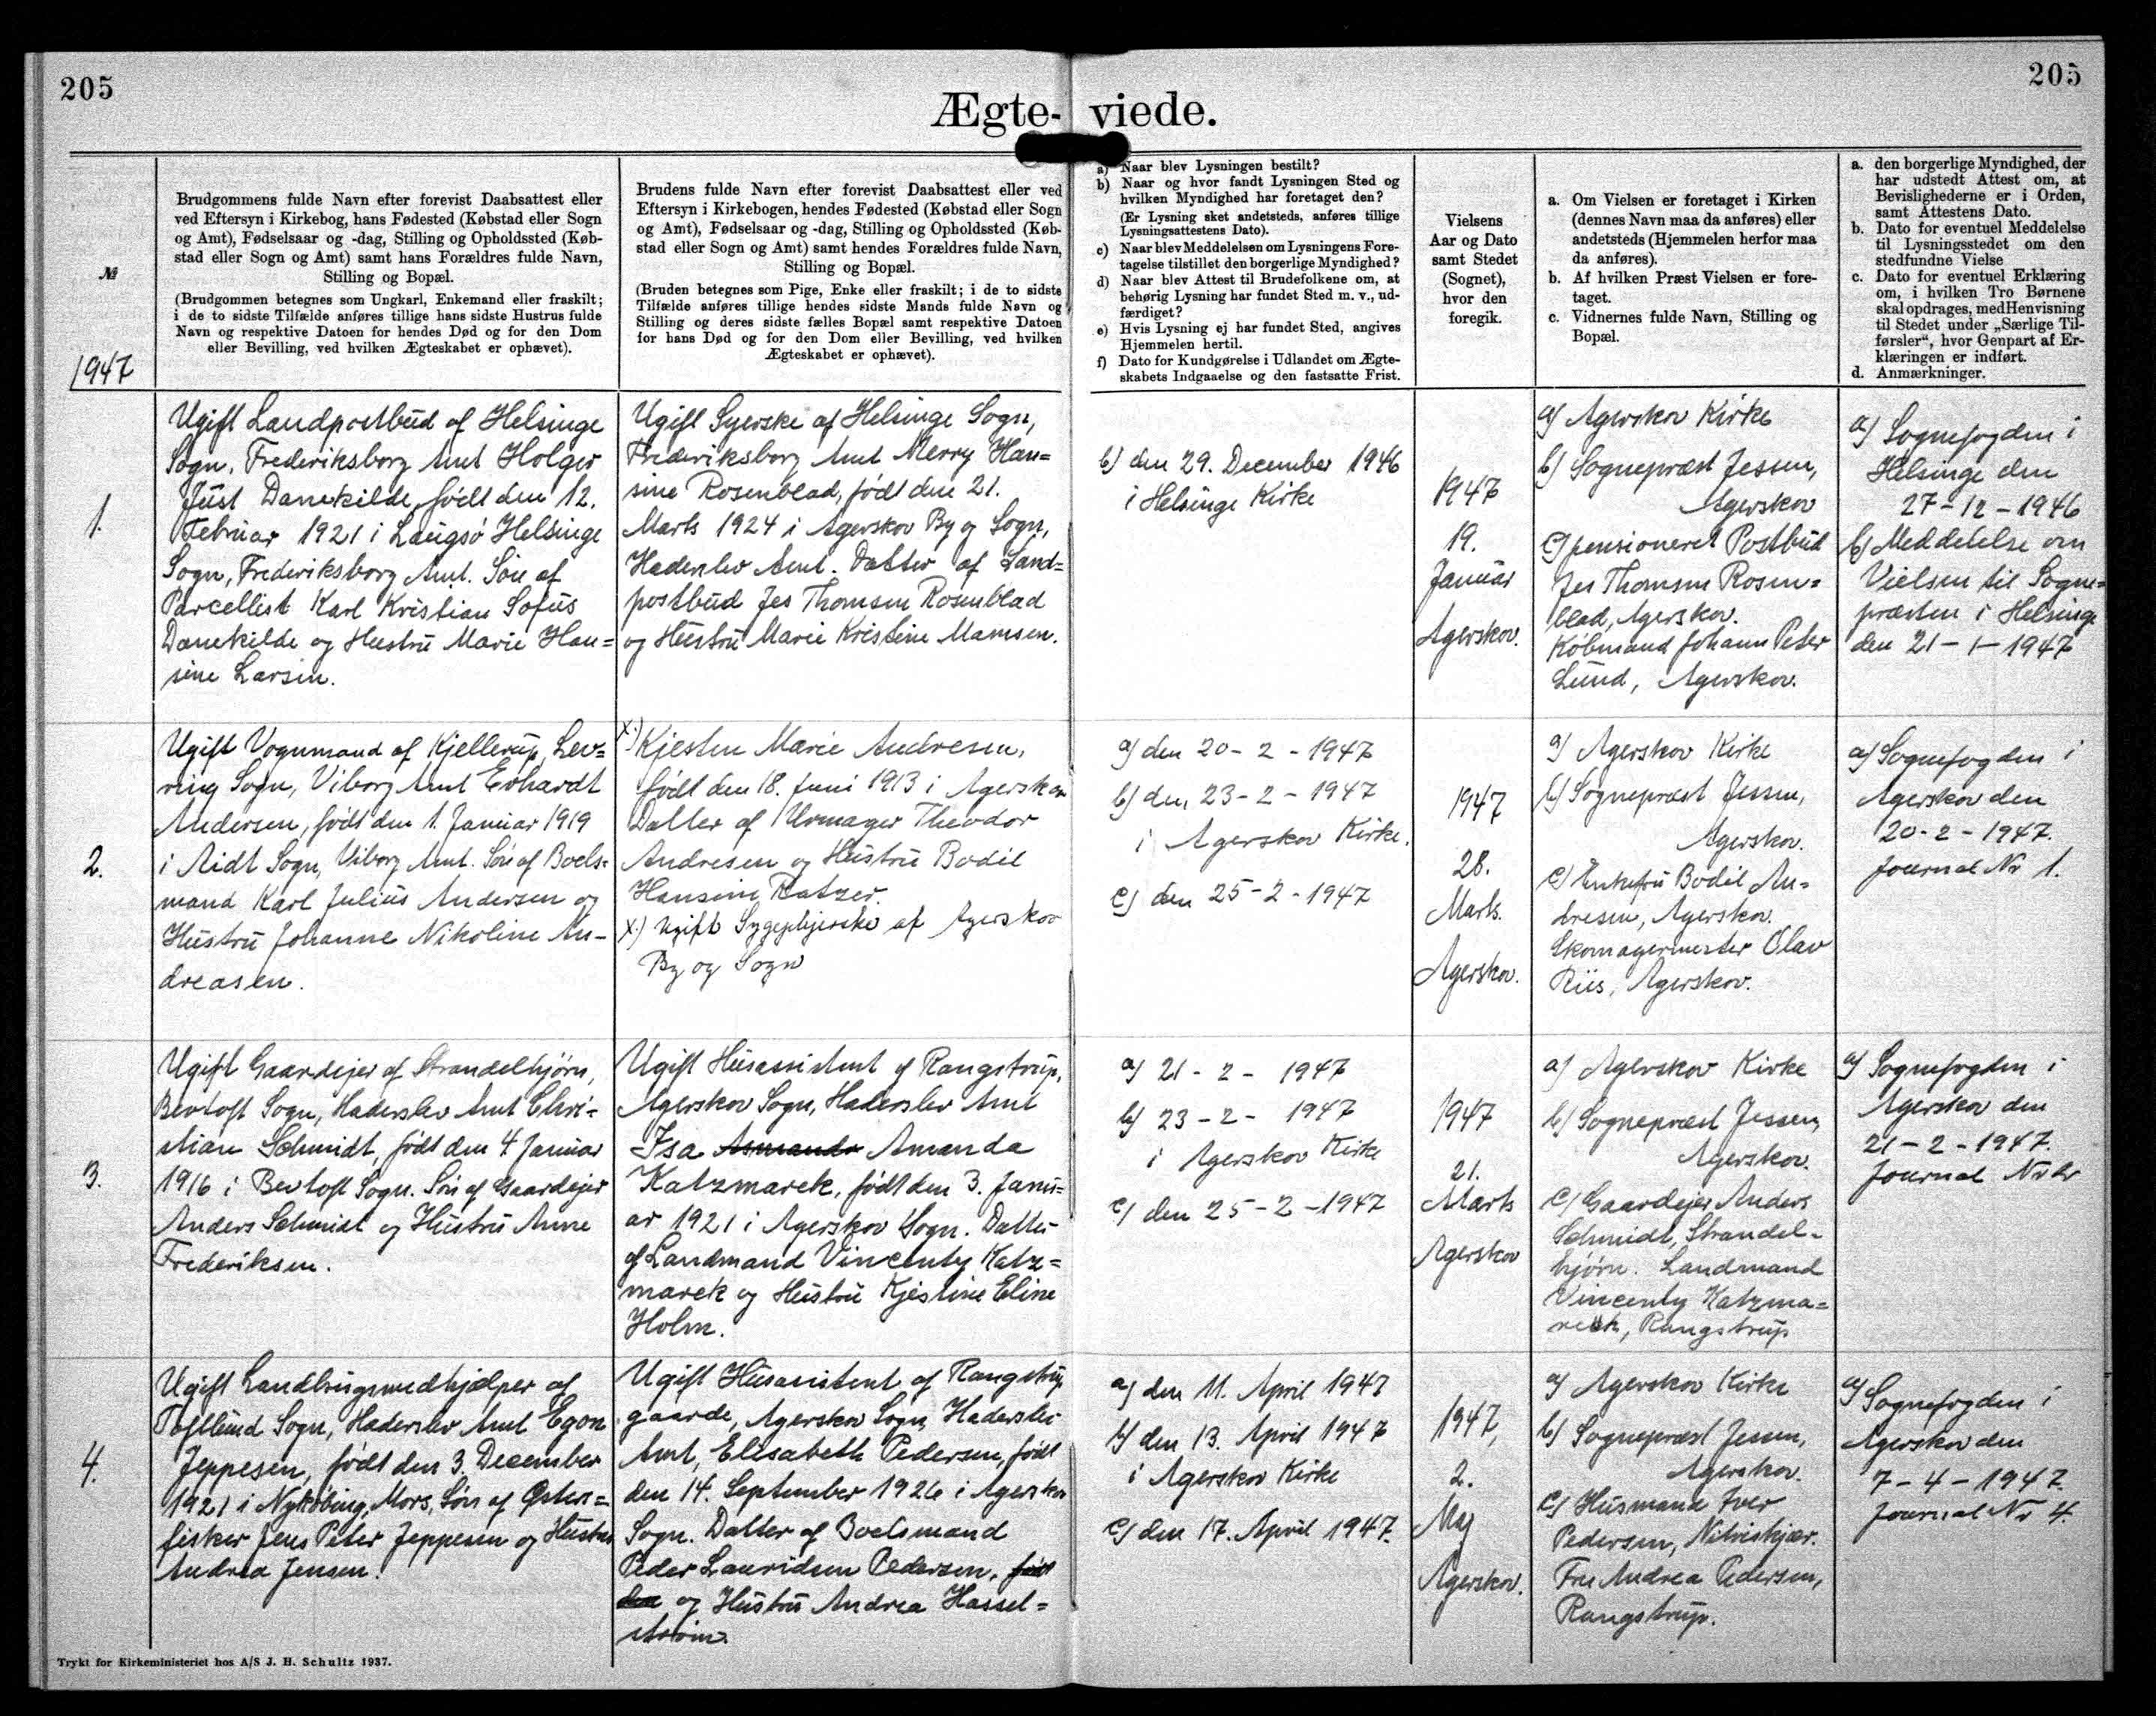 205
205
Ægte-viede.
№
1947
Brudgommens fulde Navn efter forevist Daabsattest eller
ved Eftersyn i Kirkebog, hans Fødested (Købstad eller Sogn
og Amt), Fødselsaar og -dag, Stilling og Opholdssted (Køb-
stad eller Sogn og Amt) samt hans Forældres fulde Navn,
Stilling og Bopæl.
(Brudgommen betegnes som Ungkarl, Enkemand eller fraskilt;
i de to sidste Tilfælde anføres tillige hans sidste Hustrus fulde
Navn og respektive Datoen for hendes Død og for den Dom
eller Bevilling, ved hvilken Ægteskabet er ophævet).
Brudens fulde Navn efter forevist Daabsattest eller ved
Eftersyn i Kirkebogen, hendes Fødested (Købstad eller Sogn
og Amt), Fødselsaar og -dag, Stilling og Opholdssted (Køb-
stad eller Sogn og Amt) samt hendes Forældres fulde Navn,
Stilling og Bopæl.
(Bruden betegnes som Pige, Enke eller fraskilt; i de to sidste
Tilfælde anføres tillige hendes sidste Mands fulde Navn og
Stilling og deres sidste fælles Bopæl samt respektive Datoen
for hans Død og for den Dom eller Bevilling, ved hvilken
Ægteskabet er ophævet).
a) Naar blev Lysningen bestilt?
b) Naar og hvor fandt Lysningen Sted og
hvilken Myndighed har foretaget den?
(Er Lysning sket andetsteds, anføres tillige
Lysningsattestens Dato).
c) Naar blev Meddelelsen om Lysningens Fore-
tagelse tilstillet den borgerlige Myndighed?
d) Naar blev Attest til Brudefolkene om, at
behørig Lysning har fundet Sted m. v., ud-
færdiget?
e) Hvis Lysning ej har fundet Sted, angives
Hjemmelen hertil.
f) Dato for Kundgørelse i Udlandet om Ægte-
skabets Indgaaelse og den fastsatte Frist.
Vielsens
Aar og Dato
samt Stedet
(Sognet),
hvor den
foregik.
a. Om Vielsen er foretaget i Kirken
(dennes Navn maa da anføres) eller
andetsteds (Hjemmelen herfor maa
da anføres).
b. Af hvilken Præst Vielsen er fore-
taget.
c. Vidnernes fulde Navn, Stilling og
Bopæl.
a. den borgerlige Myndighed, der
har udstedt Attest om, at
Bevislighederne er i Orden,
samt Attestens Dato.
b. Dato for eventuel Meddelelse
til Lysningsstedet om den
stedfundne Vielse
c. Dato for eventuel Erklæring
om, i hvilken Tro Børnene
skal opdrages, med Henvisning
til Stedet under „Særlige Til-
førsler“, hvor Genpart af Er-
klæringen er indført.
d. Anmærkninger.
1.
Ugift Landpostbud af Helsinge
Sogn, Frederiksborg Amt Holger
Just Danekilde, født den 12.
Februar 1921 i Laugø Helsinge
Sogn, Frederiksborg Amt. Søn af
Parcellist Karl Kristian Sofus
Danekilde og Hustru Marie Han=
sine Larsen.
Ugift Syerske af Helsinge Sogn,
Frederiksborg Amt Merry Han=
sine Rosenblad, født den 21.
Marts 1924 i Agerskov By og Sogn,
Haderslev Amt. Datter af Land=
postbud Jes Thomsen Rosenblad
og Hustru Marie Kristine Mamsen.
b) den 29. December 1946
i Helsinge Kirke
1947
19.
Januar
Agerskov.
a) Agerskov Kirke
b) Sognepræst Jessen,
Agerskov
c) pensioneret Postbud
Jes Thomsen Rosen=
blad, Agerskov.
Købmand Johann Peter
Lund, Agerskov.
a) Sognefogden i
Helsinge den
27-12-1946
b) Meddelelse om
Vielsen til Sogne=
præsten i Helsinge
den 21-1-1947
2.
Ugift Vognmand af Kjellerup, Lev=
ring Sogn, Viborg Amt Erhardt
Andersen, født den 1. Januar 1919
i Aidt Sogn, Viborg Amt. Søn af Boels=
mand Karl Julius Andersen og
Hustru Johanne Nikoline An-
dreasen.
x) Kjesten Marie Andresen,
født den 18. Juni 1913 i Agerskov
Datter af Urmager Theodor
Andresen og Hustru Bodil
Hansine Ratzer.
x) Ugift Sygeplejerske af Agerskov
By og Sogn
a) den 20-2-1947
b) den, 23-2-1947
i Agerskov Kirke.
c) den 25-2-1947
1947
28.
Marts.
Agerskov.
a) Agerskov Kirke
b) Sognepræst Jessen,
Agerskov.
c) Enkefru Bodil An=
dresen, Agerskov.
Skomagermester Olav
Riis, Agerskov.
a) Sognefogden i
Agerskov den
20-2-1947.
Journal Nr 1.
3.
Ugift Gaardejer af Strandelhjørn,
Bevtoft Sogn, Haderslev Amt Chri=
stian Schmidt, født den 4 Januar
1916 i Bevtoft Sogn. Søn af Gaardejer
Anders Schmidt og Hustru Anne
Frederiksen.
Ugift Husassistent af Rangstrup,
Agerskov Sogn, Haderslev Amt
Isa Amanda
Katzmarek, født den 3. Janu=
ar 1921 i Agerskov Sogn. Datter
af Landmand Vincenty Katz=
marek og Hustru Kjestine Eline
Holm.
a) 21-2-1947
b) 23-2-1947
i Agerskov Kirke
c) den 25-2-1947
1947
21.
Marts
Agerskov
a) Agerskov Kirke
b) Sognepræst Jessen,
Agerskov.
c) Gaardejer Anders
Schmidt, Strandel-
hjørn. Landmand
Vincenty Katzma=
rek, Rangstrup
a) Sognefogden i
Agerskov den
21-2-1947.
Journal Nr
4.
Ugift Landbrugsmedhjælper af
Toftlund Sogn, Haderslev Amt Egon
Jeppesen, født den 3. December
1921 i Nykøbing, Mors, Søn af Østers=
fisker Jens Peter Jeppesen og Hustru
Andrea Jensen.
Ugift Husassistent af Rangstrup
gaarde, Agerskov Sogn, Haderslev
Amt, Elisabeth Pedersen, født
den 14. September 1926 i Agerskov
Sogn. Datter af Boelsmand
Peder Lauridsen Pedersen, født
den og Hustru Andrea Hassel=
strøm.
a) den 11. April 1947
b) den 13. April 1947
i Agerskov Kirke
c) den 17. April 1947.
1947,
2.
Maj
Agerskov.
a) Agerskov Kirke
b) Sognepræst Jessen,
Agerskov.
c) Husmand Iver
Pedersen,
Fru Andrea Pedersen,
Rangstrup.
a) Sognefogden i
Agerskov den
7-4-1947.
Journal Nr 4.
Trykt for Kirkeministeriet hos A/S J. H. Schultz 1937.